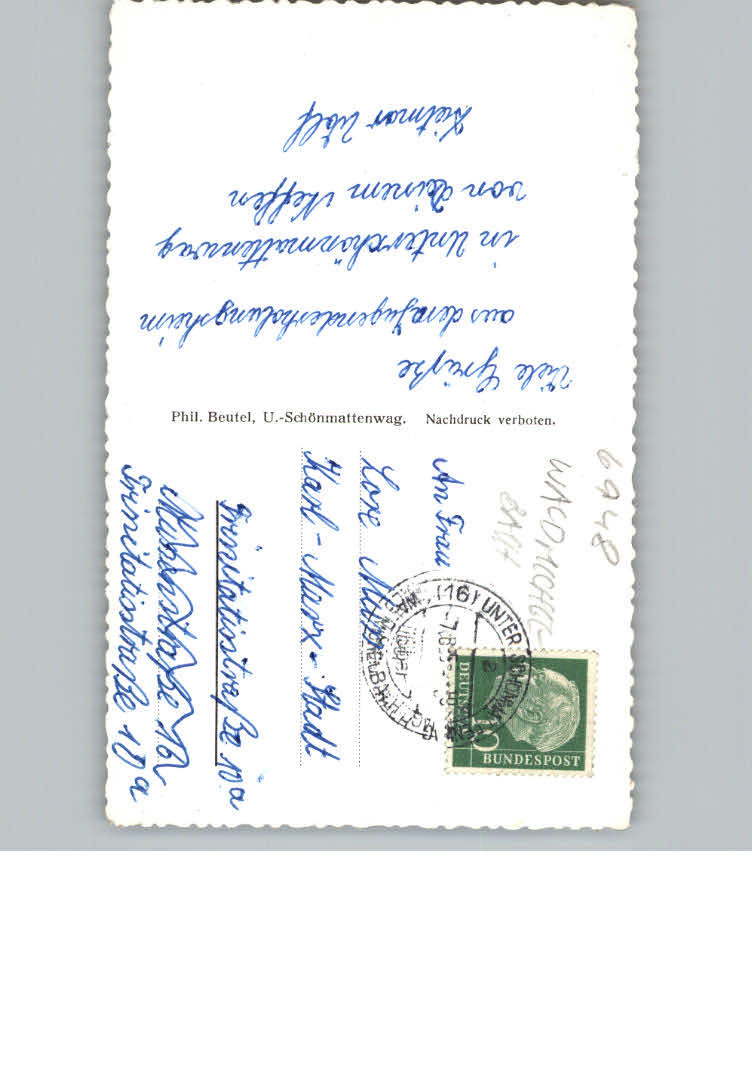 Viele Grüße
aus dem Jugenderholungsheim
in Unterschönmattenwag
von deinem Neffen
Dietmar Wolf
Phil. Beutel, U.-Schönmattenwag. Nachdruck verboten.
An Frau
Lore
Karl-Marx-Stadt
Trinitatisstraße 17a
Trinitatisstraße 17a
6948
WALDMICHEL-
BACH
(16) UNTER-SCHÖNMATTENWAG
über
DEUTSCHE
BUNDESPOST
10